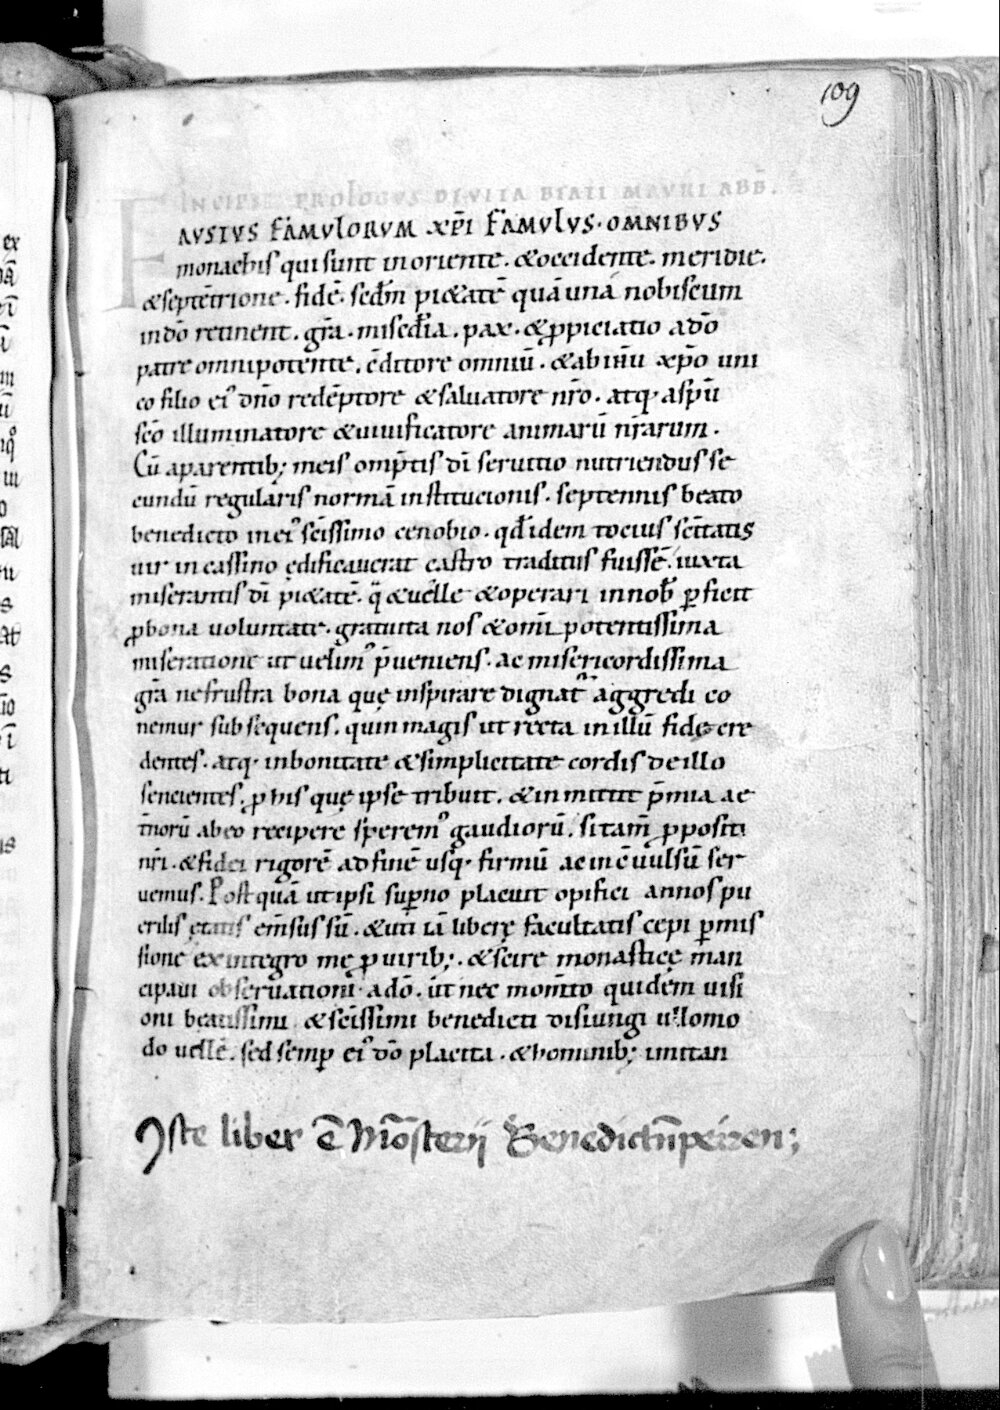 109
INCIPIT PROLOGUS DE VITA BEATI MAVRI ABB̄.
FAVSIVS FAMVLORVM XP̄I FAMVLVS · OMNIBVS
monachis qui sunt in oriente · & occidente · meridie ·
& septētrione · fidē · sed̄m pi&atē quā una nobiscum
in dō retinent · gr̄a · miseḋia · pax · & ꝓpiciatio a dō
patre omnipotente · c̄ditore omniū · & ab ihū xp̄o uni
co filio ei᾽ dn̄o redēptore & saluatore nr̄o · atq· a sp̄u
sc̄o illuminatore & uiuificatore animarū nr̄arum ·
Cū a parentib; meis omp̄tis dī seruitio nutriendus se
cundū regularis normā institucionis · septennis beato
benedicto in ei᾽ sc̄issimo cenobio · qđ idem tocius sc̄itatis
uir in cassino ędificauerat castro traditus fuissē · iuxta
miserantis dī pi&atē · q̄ & uelle & operari in nob̄ ꝑficit
ꝓ bona uoluntate · gratuita nos & om̄i potentissima
miseratione ut uelim᾽ p̄ueniens · ac misericordissima
gr̄a ne frustra bona quę inspirare dignat᾽ aggredi co
nemur subsequens · quin magis ut recta in illū fide cre
dentes · atq· in bonitate & simplicitate cordis de illo
sencientes · ꝓ his quę ipse tribuit · & inmittit p̄mia ae
t̄norū ab eo recipere sperem᾽ gaudiorū · si tam̄ ꝓpositi
nr̄i · & fidei rigorē ad finē usq· firmū ac in c̄uulsū ser
uemus · Post quā ut ipsi suꝑno placuit opifici annos pu
erilis ętatis em̄sus sū · & uti iā liberę facultatis cepi ꝑmis
sione ex integro mę ꝓ uirib; · & scire monasticę man
cipaui obseruationi · a dō · ut nec mom̄to quidem uisi
oni beatissimi · & sc̄issimi benedicti disiungi ullo mo
do uellē · sed semꝑ ei᾽ dō placita · & hominib; imitan
Iste liber ē Mōsterij Benedictn̄peiren;